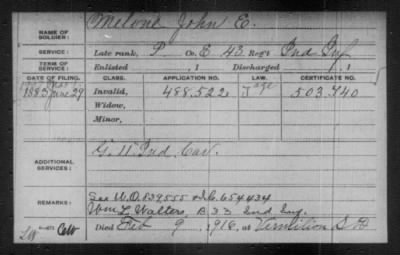 NAME OF SOLDIER: Melone John E.
SERVICE: Late rank, P Co. E 43 Reg't Ind Inf
TERM OF SERVICE: Enlisted , 1 Discharged , 1
DATE OF FILING. CLASS. APPLICATION NO. LAW. CERTIFICATE NO.
1883 June 29 Invalid, 488.522 503.740
Widow,
Minor,
ADDITIONAL SERVICES: G. 11" Ind Cav.
REMARKS: See W.O. 839555 & I.C. 654434
Wm L. Walters, B 33 Ind Inf.
Died Feb 9, 1918, at Vermilion S D